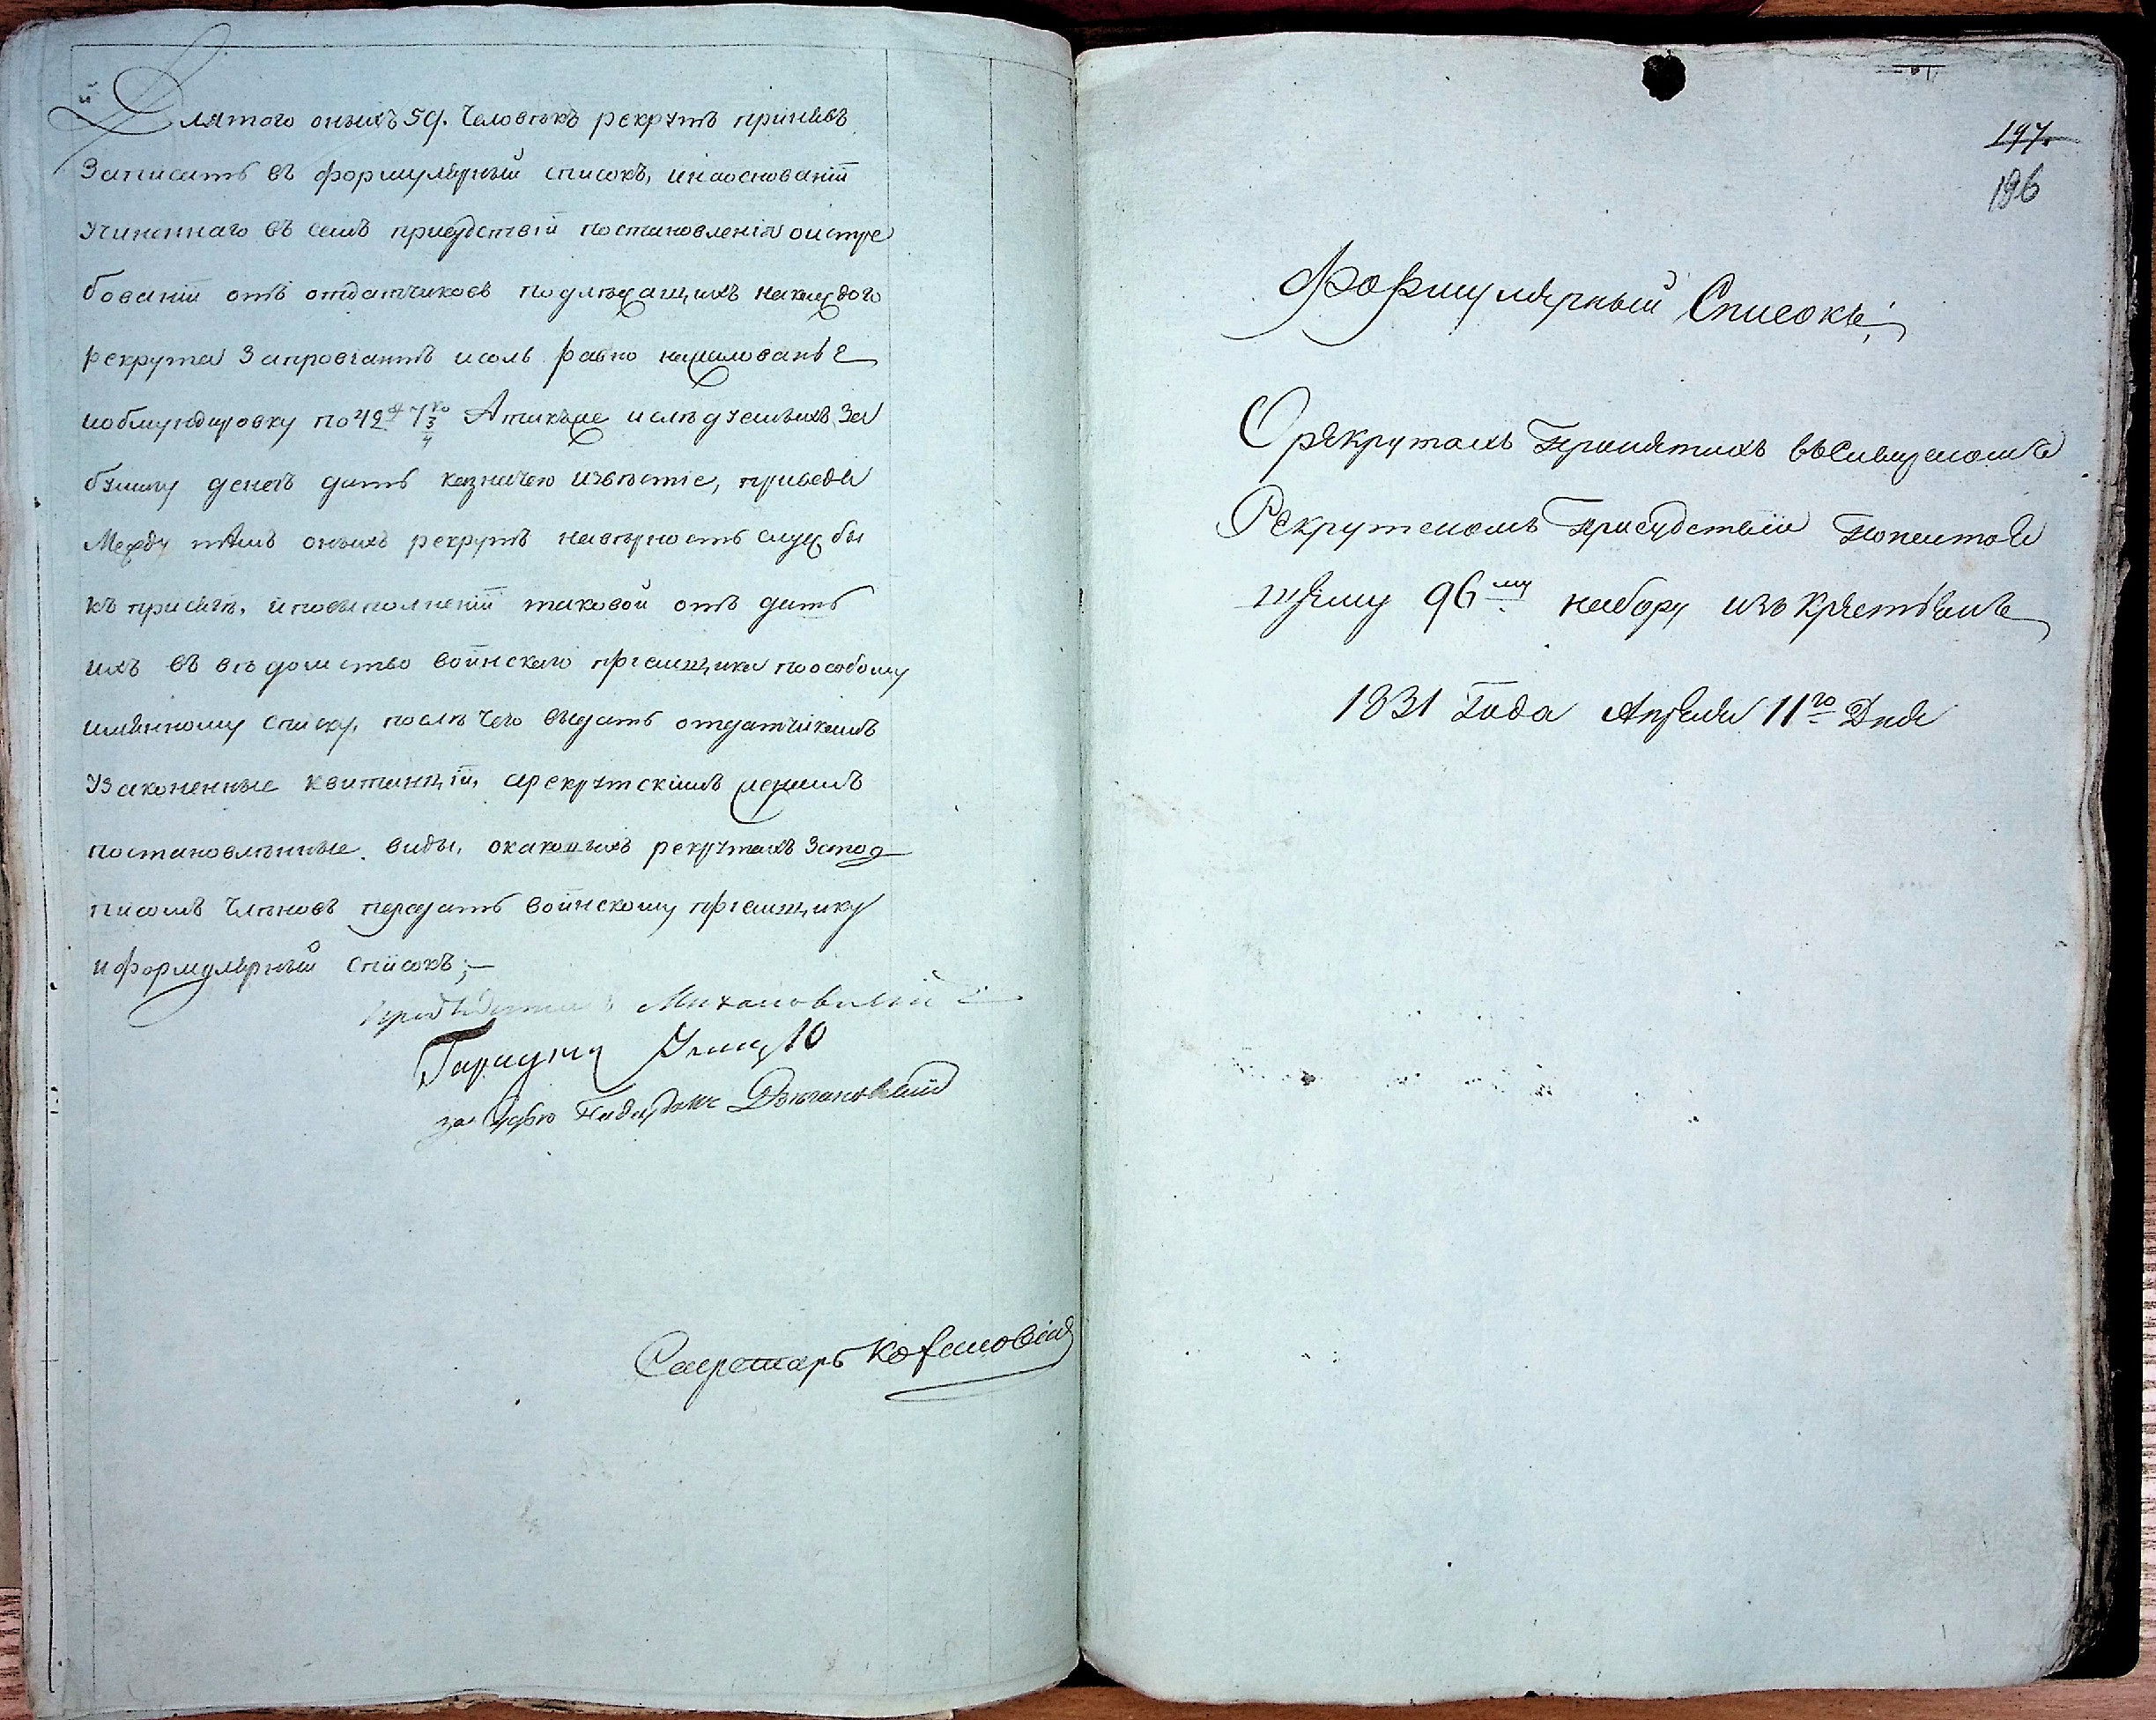 Для того оныхъ 59. Человѣкъ рекрутъ принявъ
Записать въ формулярный списокъ, и на основаніи
Учиненнаго въ семъ присудствіи постановленія о истре
бованіи отъ отдатчиковъ подлежащихъ на каждого
рекрута За провіантъ и соль равно на жалованье
и обмундировку по 42 7 3/4 А также и следуемыхъ За
бумагу денегъ дать казначею извѣстіе, приведя
Между тѣмъ оныхъ рекрутъ на вѣрность службы
къ присягѣ, и по выполненіи таковой отъ дать
ихъ въ вѣдомство воинскаго пріемщика по особому
имянному списку, послѣ чего выдать отдатчикамъ
Узаконенные квитанціи, а рекрутскимъ женамъ
постановленные виды, о каковыхъ рекрутахъ За под
писомъ Членовъ передать воинскому пріемщику
и формулярный списокъ;
Секретарь
197.
196
Формулярный Списокъ;
О рекрутахъ Принятыхъ въ
Рекрутскомъ Присудствіи по
96му набору изъ крестьянъ
1831 Года Апреля 11го Дня